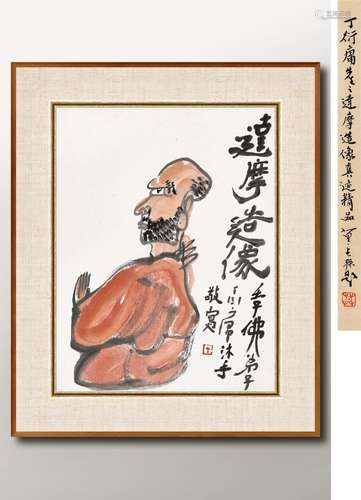 達摩造像
奉佛弟子
丁衍庸沐手
敬寫
丁衍庸先生達摩造像真迹精品